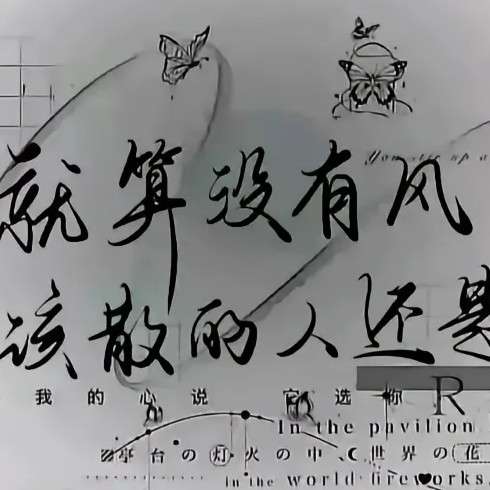 You
就算没有风
该散的人还是
我的心说 它选你
R
In the pavilion
亭台の灯火の中 世界の花
in the world fireworks.